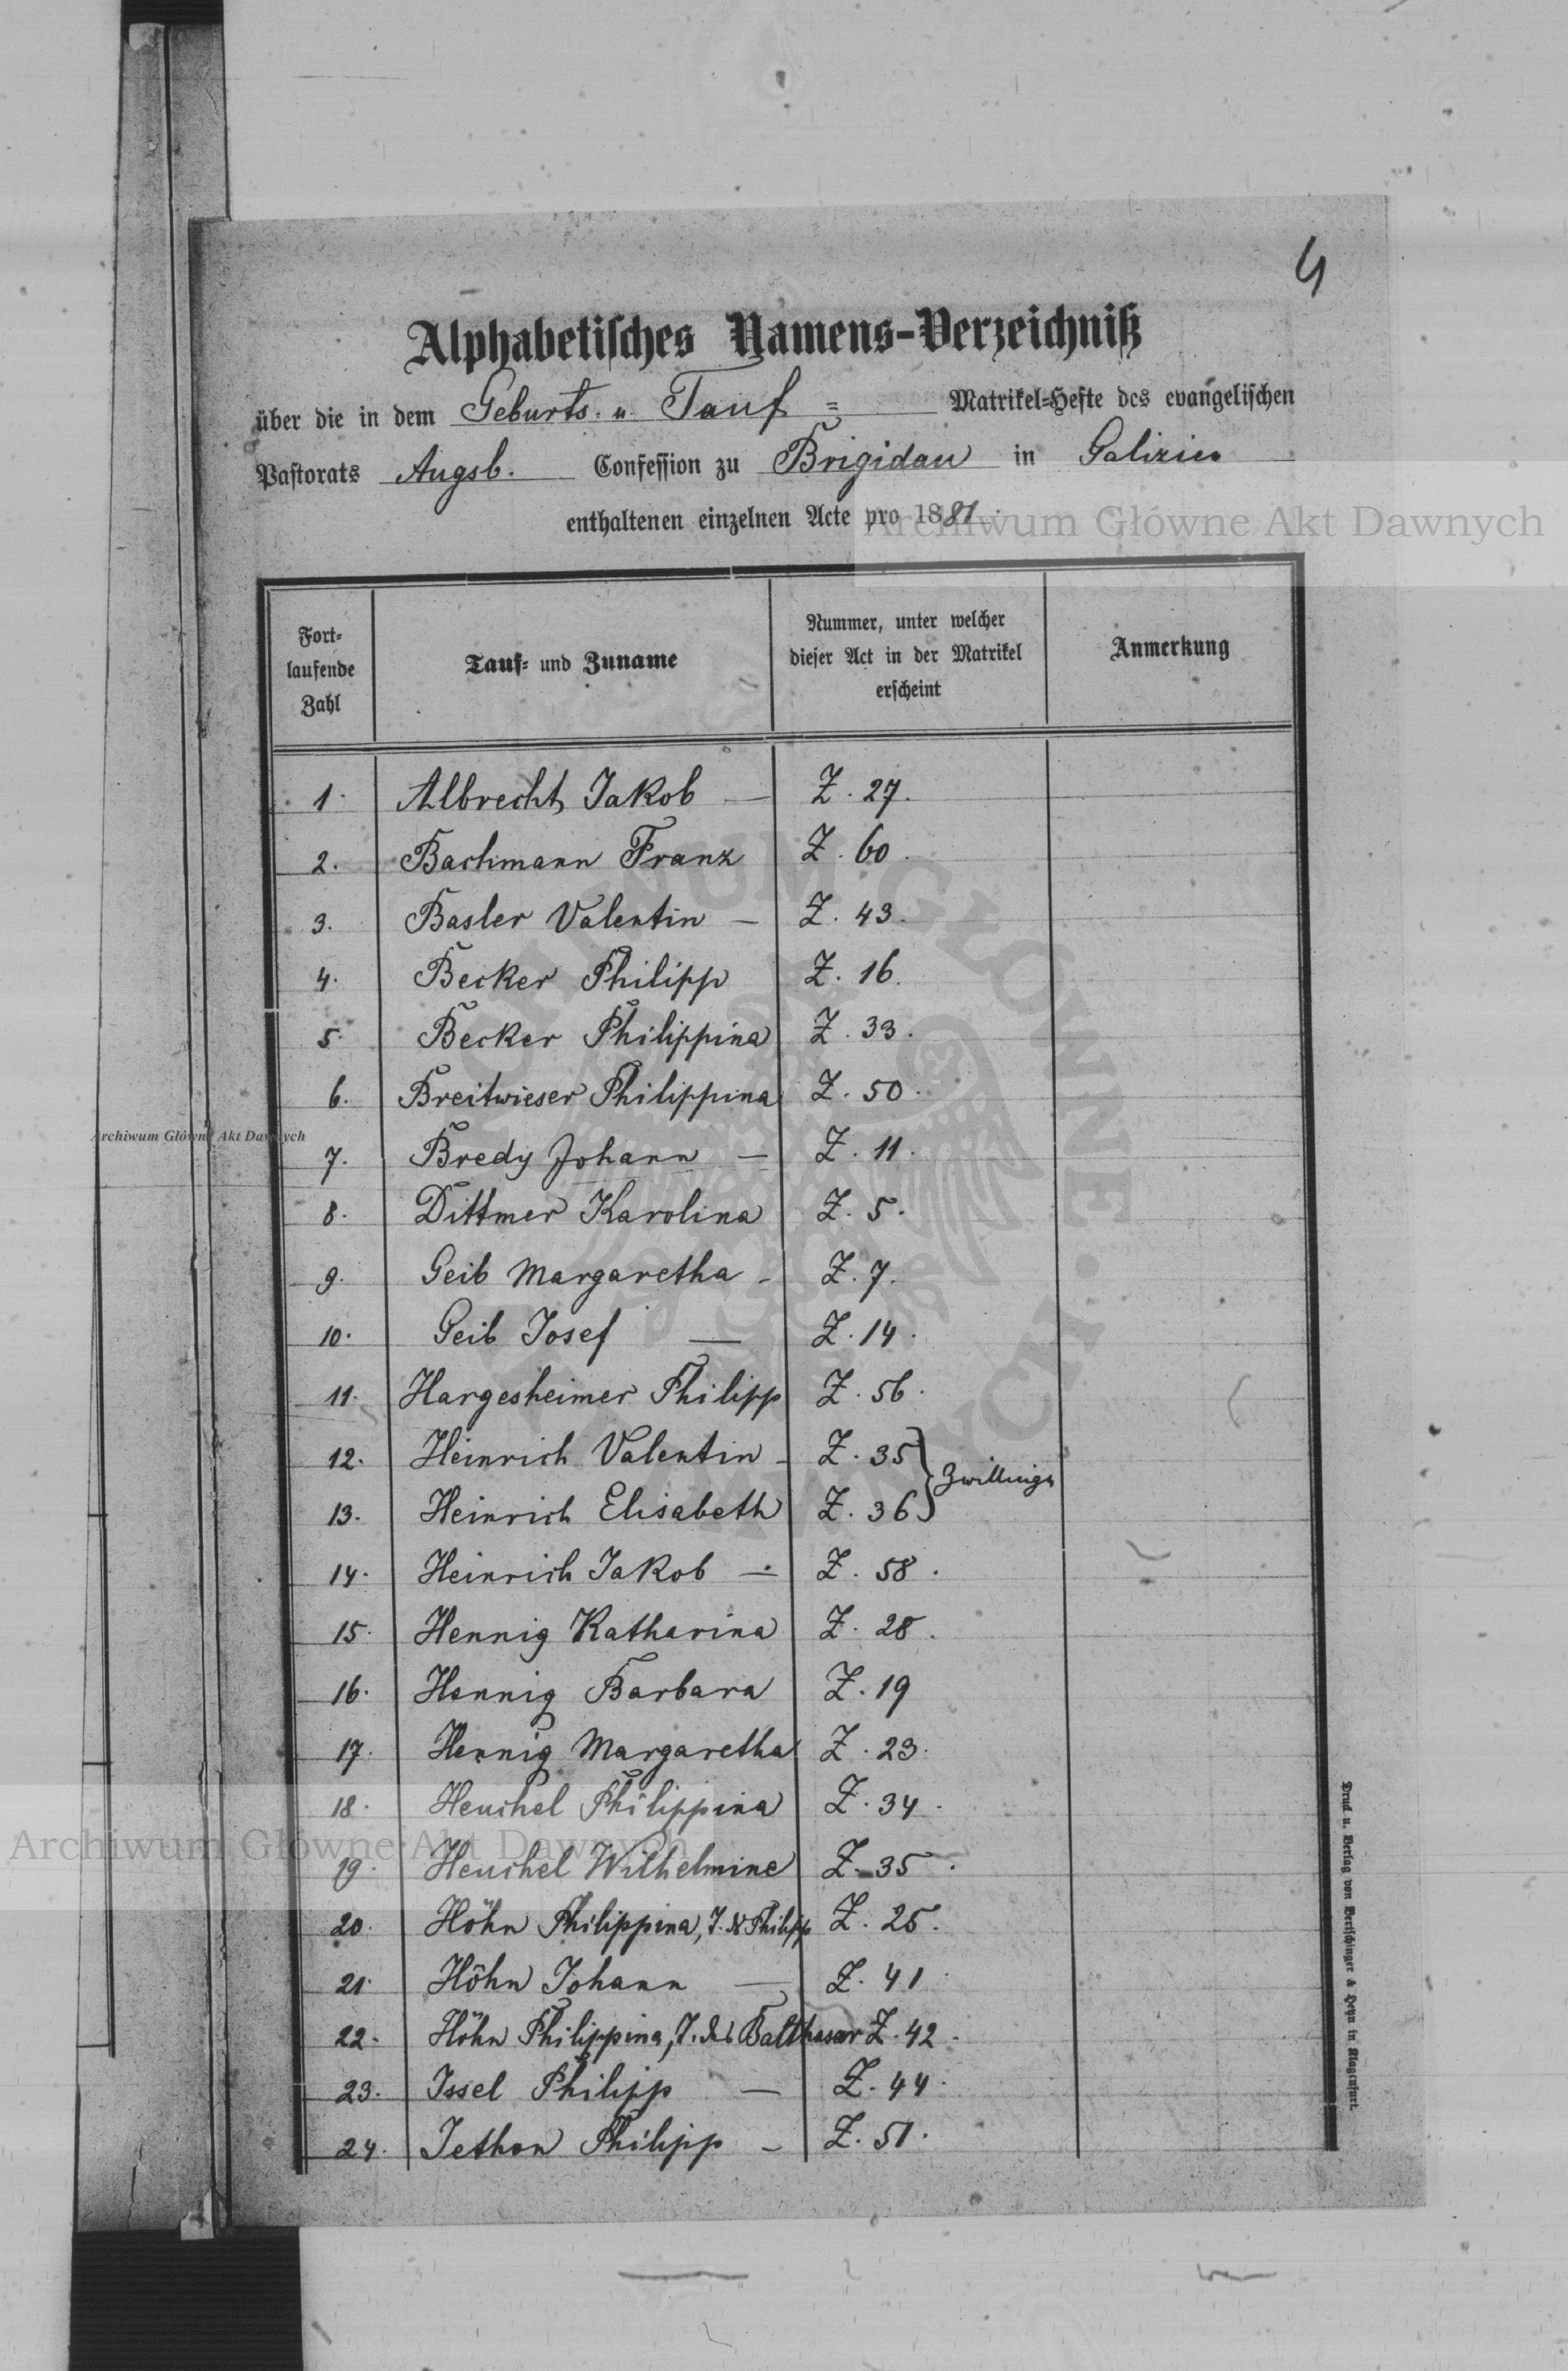 4
Alphabetisches Namens-Verzeichniß
über die in dem Geburts- u. Tauf = Matrikel-Hefte des evangelischen
Pastorats Augsb. Confession zu Brigidau in Galizien
enthaltenen einzelnen Acte pro 1881.
Archiwum Główne Akt Dawnych
Fort-
laufende
Zahl
Tauf- und Zuname
Nummer, unter welcher
dieser Act in der Matrikel
erscheint
Anmerkung
1. Albrecht Jakob — Z. 27.
2. Bachmann Franz Z. 60.
3. Basler Valentin — Z. 43.
4. Becker Philipp Z. 16.
5. Becker Philippina Z. 33.
6. Breitwieser Philippina Z. 50.
Archiwum Główne Akt Dawnych
7. Bredy Johann — Z. 11.
8. Dittmer Karolina Z. 5.
9. Geib Margaretha - Z. 7.
10. Geib Josef — Z. 14.
11. Hargesheimer Philipp Z. 56.
12. Heinrich Valentin - Z. 35 } Zwillinge
13. Heinrich Elisabeth Z. 36
14. Heinrich Jakob — Z. 58.
15. Hennig Katharina Z. 28.
16. Hennig Barbara Z. 19
17. Hennig Margaretha Z. 23.
18. Heuchel Philippina Z. 34.
Archiwum Główne Akt Dawnych
19. Heuchel Wilhelmine Z. 35.
20. Höhn Philippina, T. d. Philipp Z. 25.
21. Höhn Johann — Z. 41
22. Höhn Philippina, T. des Balthasar Z. 42.
23. Issel Philipp — Z. 44.
24. Jethon Philipp - Z. 51.
Druck u. Verlag von Bertschinger & Heyn in Klagenfurt.
ARCHIWUM GŁÓWNE AKT DAWNYCH